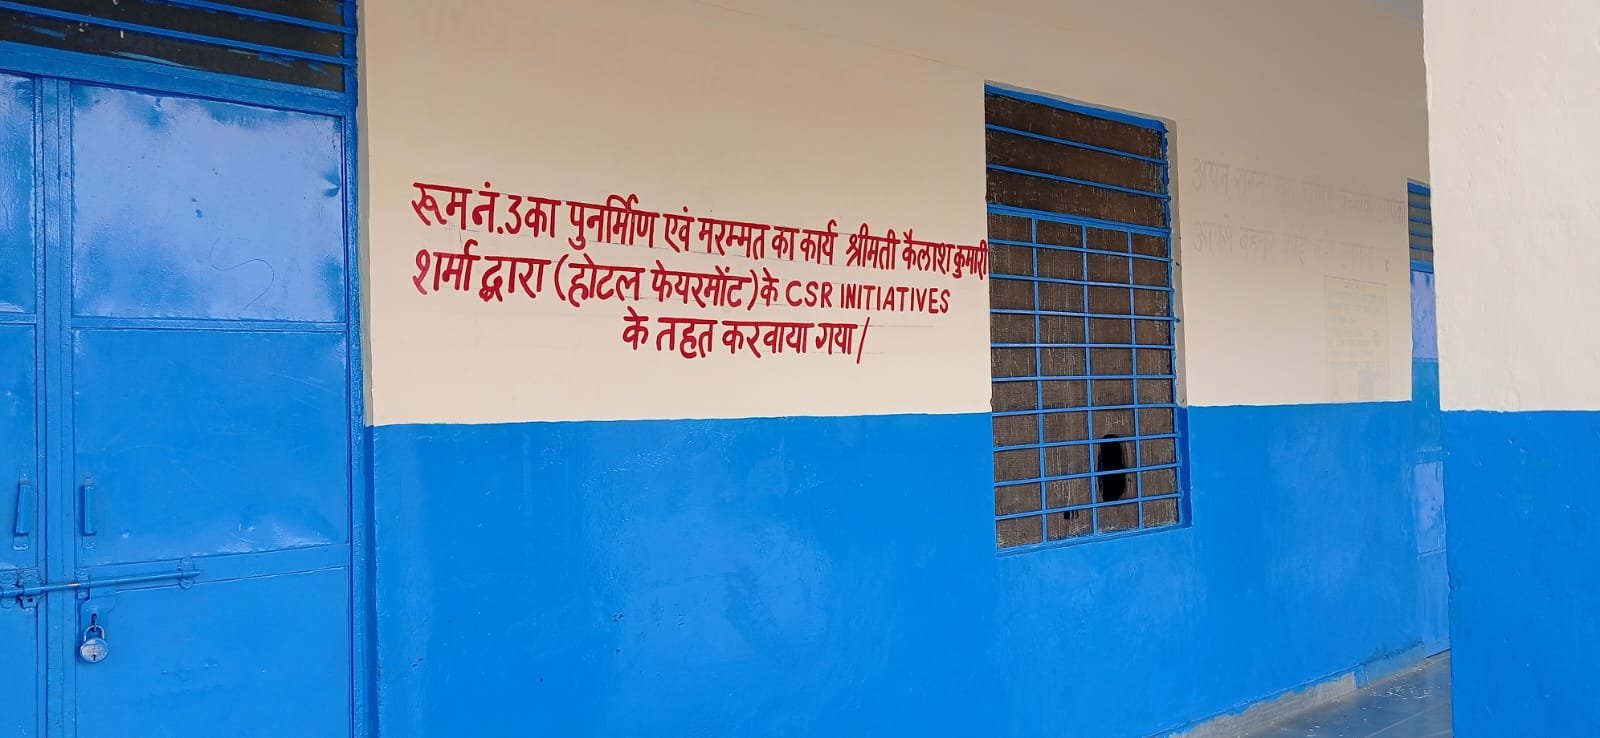 रूम नं.3 का पुनर्मिाण एवं मरम्मत का कार्य श्रीमती कैलाश कुमारी
शर्मा द्वारा (होटल फेयरमोंट) के CSR INITIATIVES
के तहत करवाया गया/